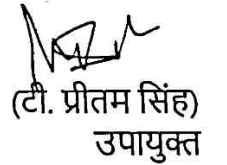 (टी. प्रीतम सिंह)
उपायुक्त